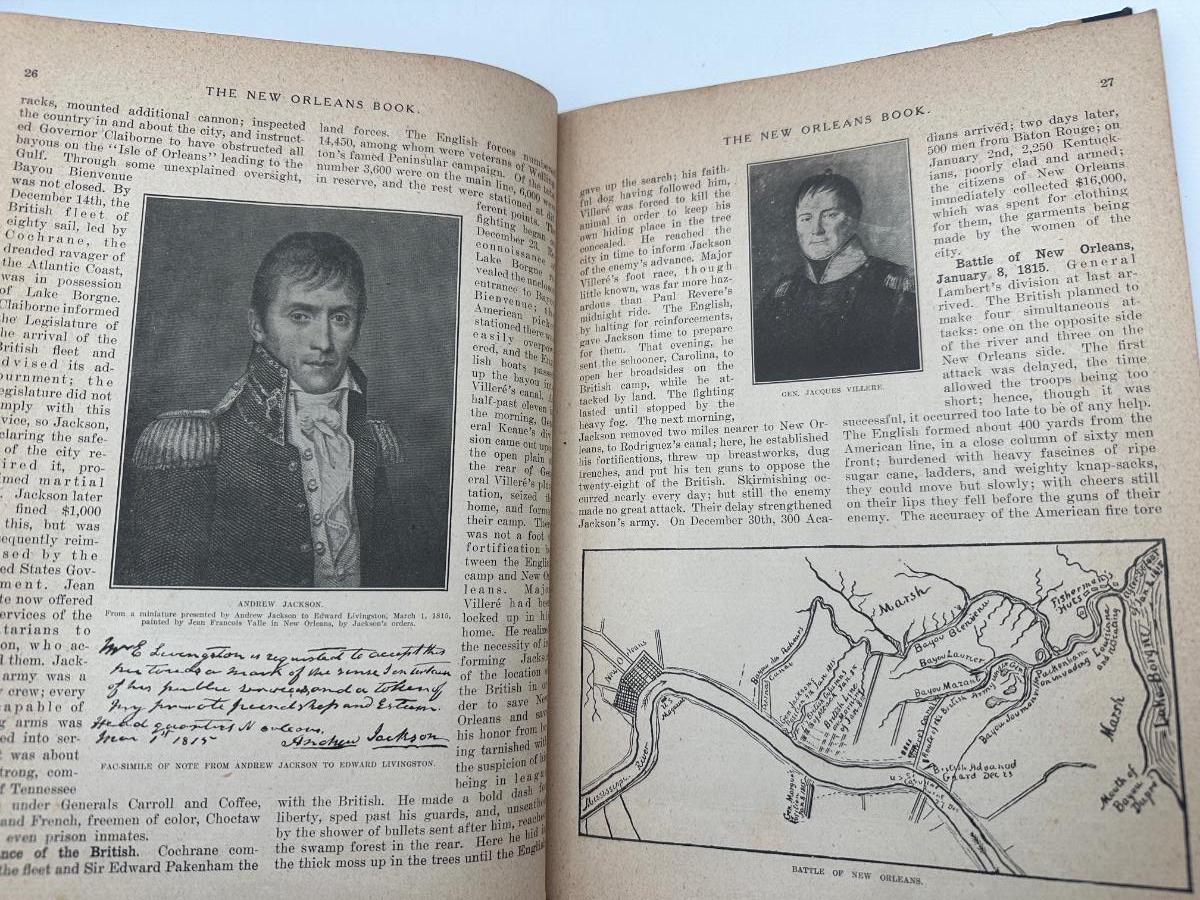 26
THE NEW ORLEANS BOOK.
racks, mounted additional cannon; inspected
the country in and about the city, and instruct-
ed Governor Claiborne to have obstructed all
bayous on the "Isle of Orleans" leading to the
Gulf. Through some unexplained oversight,
Bayou Bienvenue
was not closed. By
December 14th, the
British fleet of
eighty sail, led by
Cochrane, the
dreaded ravager of
the Atlantic Coast,
was in possession
of Lake Borgne.
Claiborne informed
the Legislature of
the arrival of the
British fleet and
advised its ad-
ournment; the
egislature did not
mply with this
vice, so Jackson,
claring the safe-
of the city re-
ired it, pro-
imed martial
. Jackson later
fined $1,000
this, but was
sequently reim-
sed by the
ed States Gov-
ment. Jean
te now offered
ervices of the
tarians to
on, who ac-
d them. Jack-
army was a
y crew; every
capable of
g arms was
ed into ser-
t was about
trong, com-
f Tennessee
under Generals Carroll and Coffee,
and French, freemen of color, Choctaw
even prison inmates.
nce of the British. Cochrane com-
the fleet and Sir Edward Pakenham the
land forces. The English forces numbered
14,450, among whom were veterans of Welling-
ton's famed Peninsular campaign. Of the
number 3,600 were on the main line, 6,000 were
in reserve, and the rest were stationed at dif-
ferent points. The
fighting began on
December 23. Re-
connoissance
Lake Borgne
vealed the unclosed
entrance to Bayou
Bienvenue; the
American pick
stationed there was
easily overpow-
ered, and the Eng-
lish boats passed
up the bayou in
Villeré's canal. At
half-past eleven in
the morning, Gen-
eral Keane's divi-
sion came out upon
the open plain
the rear of Gen-
eral Villeré's plan-
tation, seized
home, and formed
their camp. There
was not a foot of
fortification be-
tween the English
camp and New Or-
leans. Major
Villeré had been
locked up in his
home. He realized
the necessity of in-
forming Jackson
of the location
the British in or-
der to save New
Orleans and save
his honor from be-
ing tarnished with
the suspicion of
being in league
with the British. He made a bold dash for
liberty, sped past his guards, and, unscathed
by the shower of bullets sent after him, reached
the swamp forest in the rear. Here he hid in
the thick moss up in the trees until the English
ANDREW JACKSON.
From a miniature presented by Andrew Jackson to Edward Livingston, March 1, 1815,
painted by Jean Francois Valle in New Orleans, by Jackson's orders.
Mr E Livingston is requested to accept this
picture as a mark of the sense I entertain
of his public services, and a token of
my private friendship and Esteem.
Head quarters N orleans,
Mar 1st 1815 Andrew Jackson
FAC-SIMILE OF NOTE FROM ANDREW JACKSON TO EDWARD LIVINGSTON.
27
THE NEW ORLEANS BOOK.
gave up the search; his faith-
ful dog having followed him,
Villeré was forced to kill the
animal in order to keep his
own hiding place in the tree
concealed. He reached the
city in time to inform Jackson
of the enemy's advance. Major
Villeré's foot race, though
little known, was far more haz-
ardous than Paul Revere's
midnight ride. The English,
by halting for reinforcements,
gave Jackson time to prepare
for them. That evening, he
sent the schooner, Carolina, to
open her broadsides on the
British camp, while he at-
tacked by land. The fighting
lasted until stopped by the
heavy fog. The next morning,
Jackson removed two miles nearer to New Or-
leans, to Rodriguez's canal; here, he established
his fortifications, threw up breastworks, dug
trenches, and put his ten guns to oppose the
twenty-eight of the British. Skirmishing oc-
curred nearly every day; but still the enemy
made no great attack. Their delay strengthened
Jackson's army. On December 30th, 300 Aca-
GEN. JACQUES VILLERE.
dians arrived; two days later,
500 men from Baton Rouge; on
January 2nd, 2,250 Kentuck-
ians, poorly clad and armed;
the citizens of New Orleans
immediately collected $16,000,
which was spent for clothing
for them, the garments being
made by the women of the
city.
Battle of New Orleans,
January 8, 1815. General
Lambert's division at last ar-
rived. The British planned to
make four simultaneous at-
tacks: one on the opposite side
of the river and three on the
New Orleans side. The first
attack was delayed, the time
allowed the troops being too
short; hence, though it was
successful, it occurred too late to be of any help.
The English formed about 400 yards from the
American line, in a close column of sixty men
front; burdened with heavy fascines of ripe
sugar cane, ladders, and weighty knap-sacks,
they could move but slowly; with cheers still
on their lips they fell before the guns of their
enemy. The accuracy of the American fire tore
Marsh
Bayou Bienvenu
Fishermen's
Huts
Bayou Launier
Bayou Mazant
New Orleans
Mississippi River
British Army
Route of the British
Pakenham
on invading Louisiana
and retreating
British Advanced
Guard Dec 23
Lake Borgne
Marsh
Mouth of
Bayou
Dupre
BATTLE OF NEW ORLEANS.